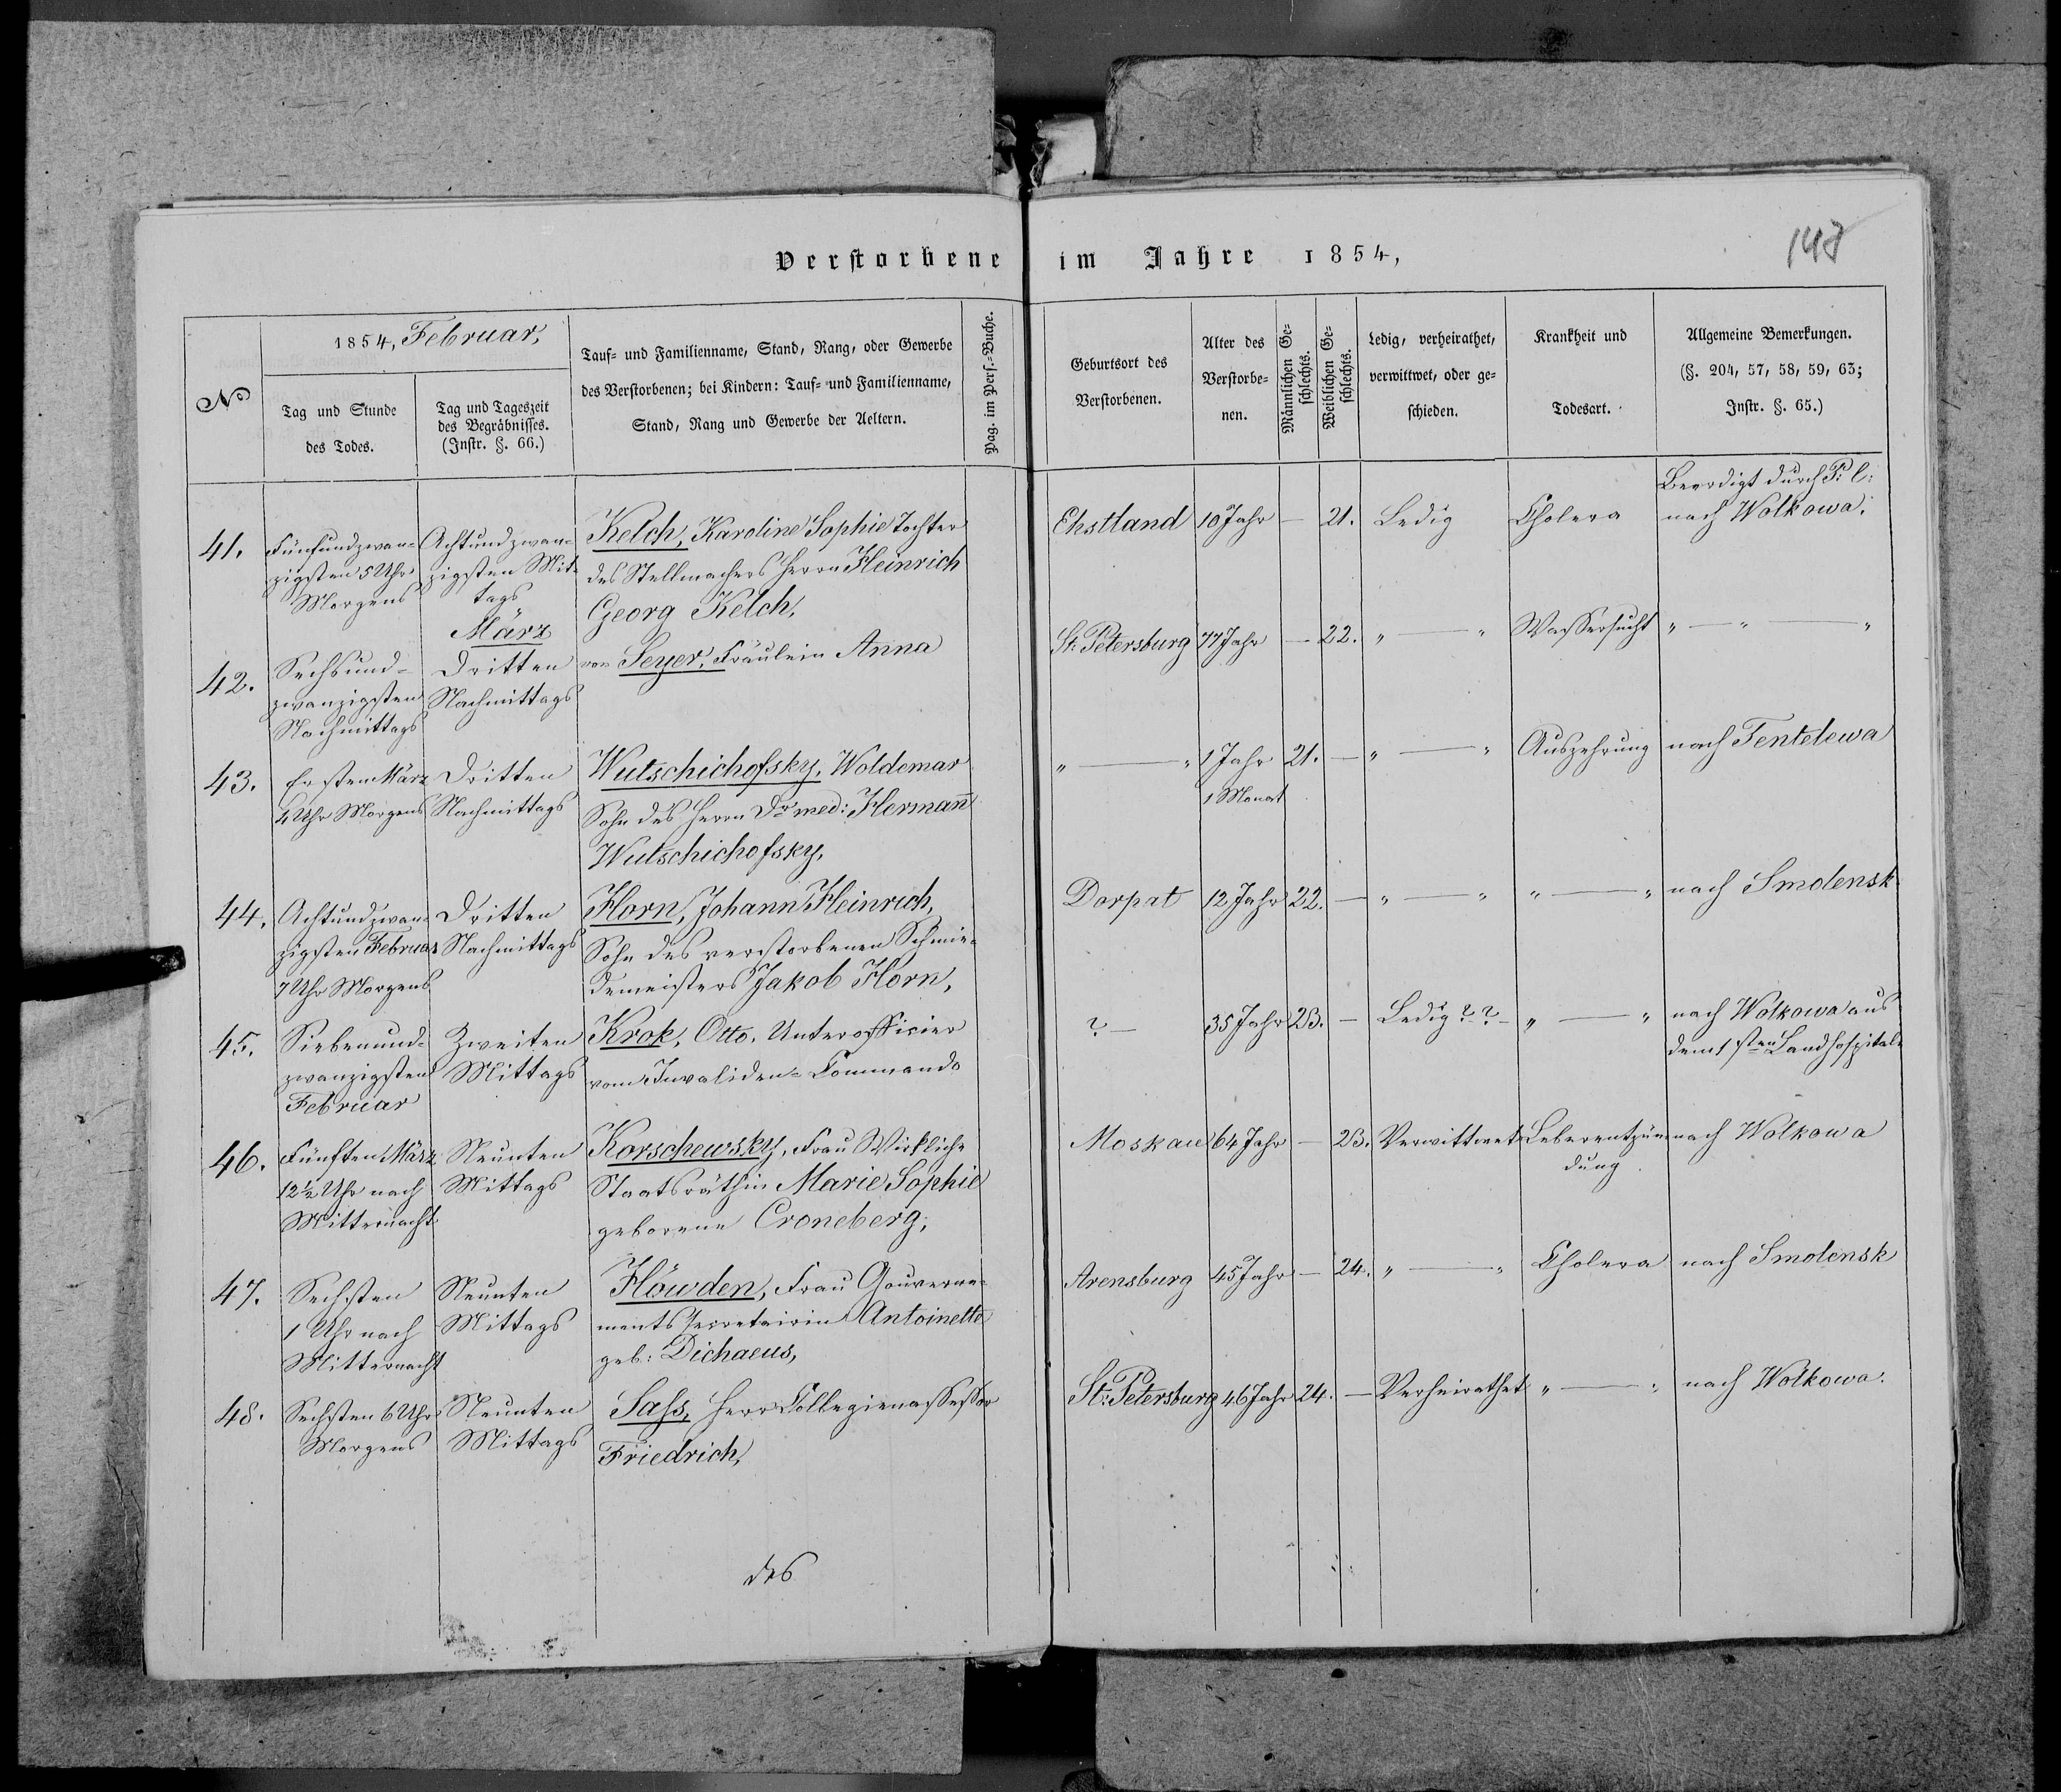 Verstorbene im Jahre 1854,
148
No
1854, Februar,
Tag und Stunde
des Todes.
Tag und Tageszeit
des Begräbnisses.
(Instr. §. 66.)
Tauf- und Familienname, Stand, Rang, oder Gewerbe
des Verstorbenen; bei Kindern: Tauf- und Familienname,
Stand, Rang und Gewerbe der Aeltern.
Pag. im Pers.-Buche.
Geburtsort des
Verstorbenen.
Alter des
Verstorbe-
nen.
Männlichen Ge-
schlechts.
Weiblichen Ge-
schlechts.
Ledig, verheirathet,
verwittwet, oder ge-
schieden.
Krankheit und
Todesart.
Allgemeine Bemerkungen.
(§. 204, 57, 58, 59, 63;
Instr. §. 65.)
41.
Fünfundzwan-
zigsten 5 Uhr
Morgens
Achtundzwan-
zigsten Mit-
tags
Kelch, Karoline Sophie Tochter
des Stellmachers Herrn Heinrich
Georg Kelch,
Ehstland
10 Jahr
—
21.
Ledig
Cholera
Beerdigt durch P: C:
nach Wolkowa.
März
42.
Sechsund-
zwanzigsten
Nachmittags
Dritten
Nachmittags
von Seyer, Fräulein Anna
St: Petersburg
77 Jahr
—
22.
" — "
Wassersucht
" — " — "
43.
Ersten März
4 Uhr Morgens
Dritten
Nachmittags
Wutschichofsky, Woldemar
Sohn des Herrn Dr med: Hermañ
Wutschichofsky,
" — "
1 Jahr
1 Monat
21.
—
" — "
Auszehrung
nach Tentelewa
44.
Achtundzwan-
zigsten Februar
7 Uhr Morgens
Dritten
Nachmittags
Horn, Johann Heinrich,
Sohn des verstorbenen Schmie-
demeisters Jakob Horn,
Dorpat
12 Jahr
22.
—
" — "
" — "
nach Smolensk
45.
Siebenund-
zwanzigsten
Februar
Zweiten
Mittags
Krok, Otto, Unterofficier
vom Invaliden-Commando
? —
35 Jahr
23.
—
Ledig ? ? —
" — "
nach Wolkowa aus
dem 1sten Landhospital
46.
Fünften März
12½ Uhr nach
Mitternacht
Neunten
Mittags
Korschewsky, Frau Wirkliche
Staatsräthin Marie Sophie
geborene Croneberg,
Moskau
64 Jahr
—
23.
Verwittwet
Leberentzün-
dung
nach Wolkowa
47.
Sechsten
1 Uhr nach
Mitternacht
Neunten
Mittags
Höwden, Frau Gouverne-
mentssecretairin Antoinette
geb: Dichaeus,
Arensburg
45 Jahr
—
24.
" — "
Cholera
nach Smolensk
48.
Sechsten 6 Uhr
Morgens
Neunten
Mittags
Sass, Herr Collegienassessor
Friedrich,
St: Petersburg
46 Jahr
24.
—
Verheirathet
" — "
nach Wolkowa.
des